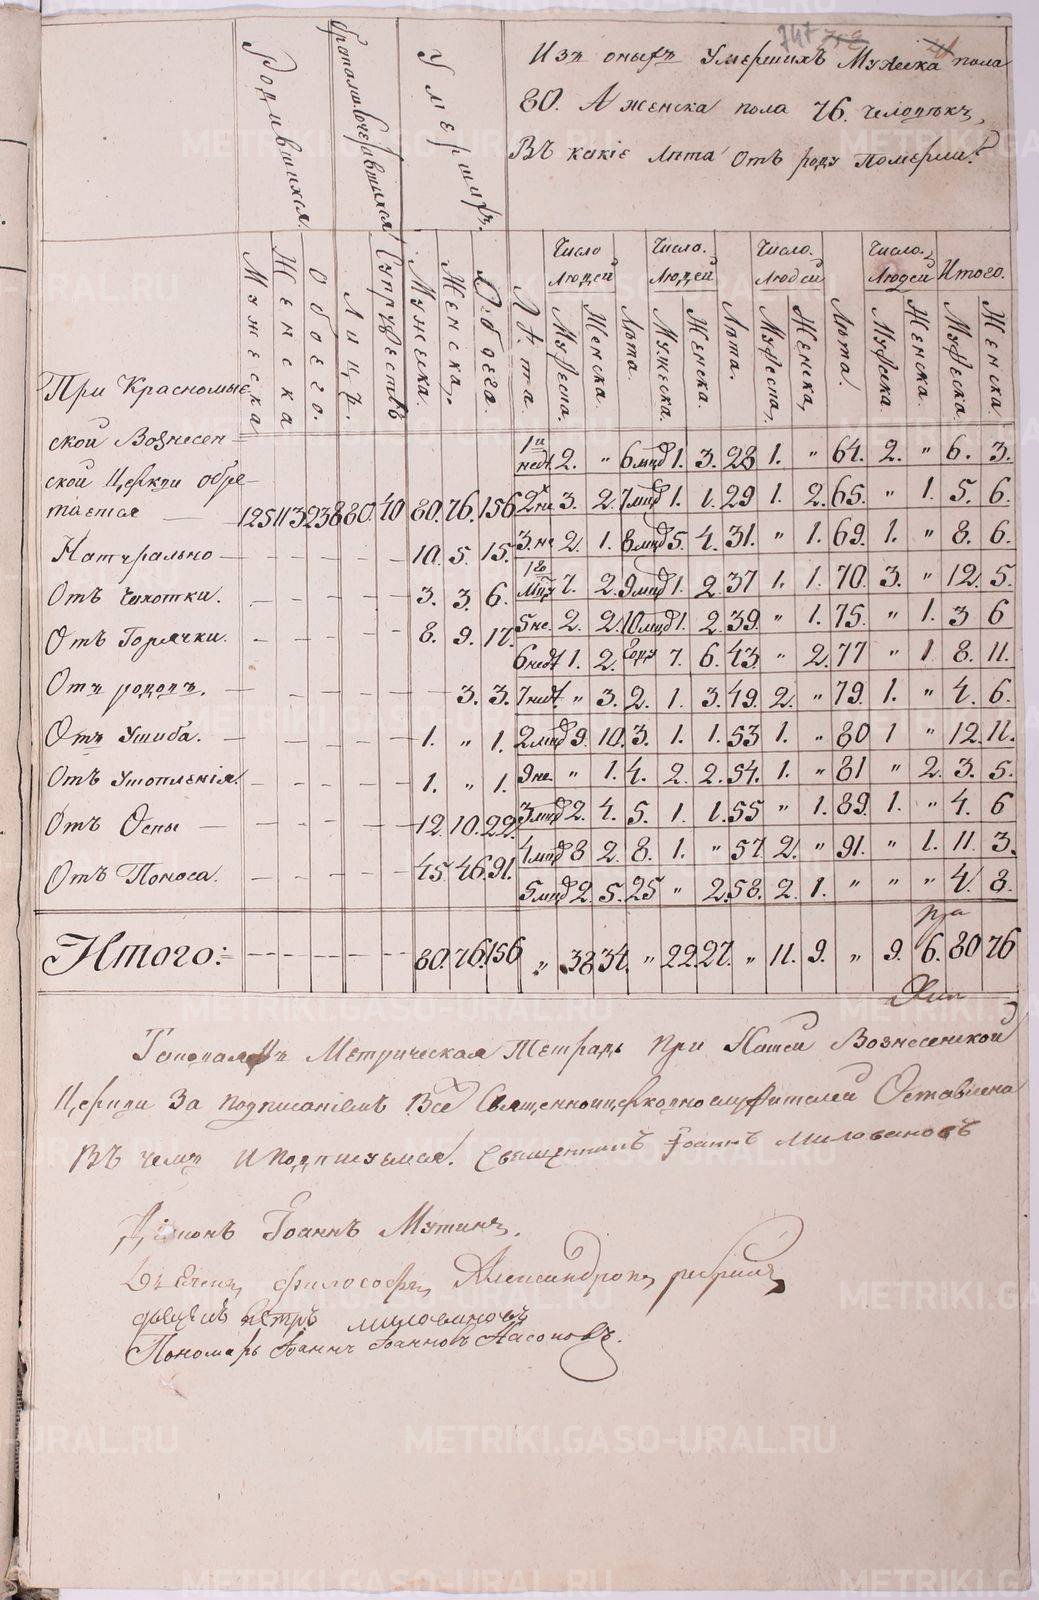 747
Изъ оныхъ Умершихъ Мужеска пола
80. А женска пола 76. человѣкъ,
Въ какіе лѣта отъ роду Померли?
Родившихся.
Умершихъ.
Число Людей
Число. Людей
Число. Людей
Число. Людей
Итого.
Мужеска
Женска
Обоего.
Лицъ.
Супружествъ
Мужеска.
Женска,
Обоего.
Лѣта
Мужеска,
Женска.
Лѣта.
Мужеска.
Женска.
Лѣта.
Мужеска,
Женска,
Лѣта.
Мужеска.
Женска.
Мужеска.
Женска.
При Красномыс-
ской Вознесен=
ской Церкви обре-
тается — 125 113 238 80. 40 80. 76. 156
Натурально — 10. 5. 15.
Отъ Чахотки. 3. 3. 6.
Отъ Горячки. 8. 9. 17.
Отъ родовъ. — 3. 3.
Отъ Ушиба. — 1. " 1.
Отъ Утопленія. 1. " 1.
Отъ Оспы — 12. 10. 22.
Отъ Поноса. — 45. 46. 91.
1й недѣ. 2. " 6 мцд 1. 3. 28 1. " 64. 2. " 6. 3.
2х не. 3. 2. 7 мцд 1. 1. 29 1. 2. 65. " 1. 5. 6.
3. не 2. 1. 8 мцд 5. 4. 31. " 1. 69. 1. " 8. 6.
7. 2. 9 мцд 1. 2 37 1. 1. 70. 3. " 12. 5.
5 не. 2. 2. 10 мцд 1. 2. 39. " 1. 75. " 1. 3 6
6 недѣ 1. 2. году 7. 6. 43. " 2. 77 " 1 8. 11.
7 недѣ. " 3. 2. 1. 3. 49. 2. " 79. 1. " 4. 6.
2 мцд 9. 10. 3. 1. 1. 53 1. " 80 1 " 12. 11.
9 не. " 1. 4. 2. 2. 54. 1. " 81 " 2. 3. 5.
3 мцд 2. 4. 5. 1. 1. 55 " 1. 89. 1. " 4. 6
4 мцд 8 2. 8. 1. " 57 2. " 91. " 1. 11. 3.
5 мцд 2. 5. 25 " 2. 58. 2. 1. " " " 4. 8.
Итого: — — — — — 80. 76. 156 " 38 34. " 22 27. " 11. 9. " 9. 6. 80 76
Таковаяжъ Метрическая Тетрадь при Нашей Вознесенской
Церкви За подписаніемъ Всѣ Священноцерковнослужителей Оставлена
Въ чемъ и подписуемся. Священникъ Іоаннъ Миловановъ
Діаконъ Іоаннъ Мутинъ.
Петръ Миловановъ
Пономарь Іоаннъ Іоанновъ Насоновъ.
METRIKI.GASO-URAL.RU